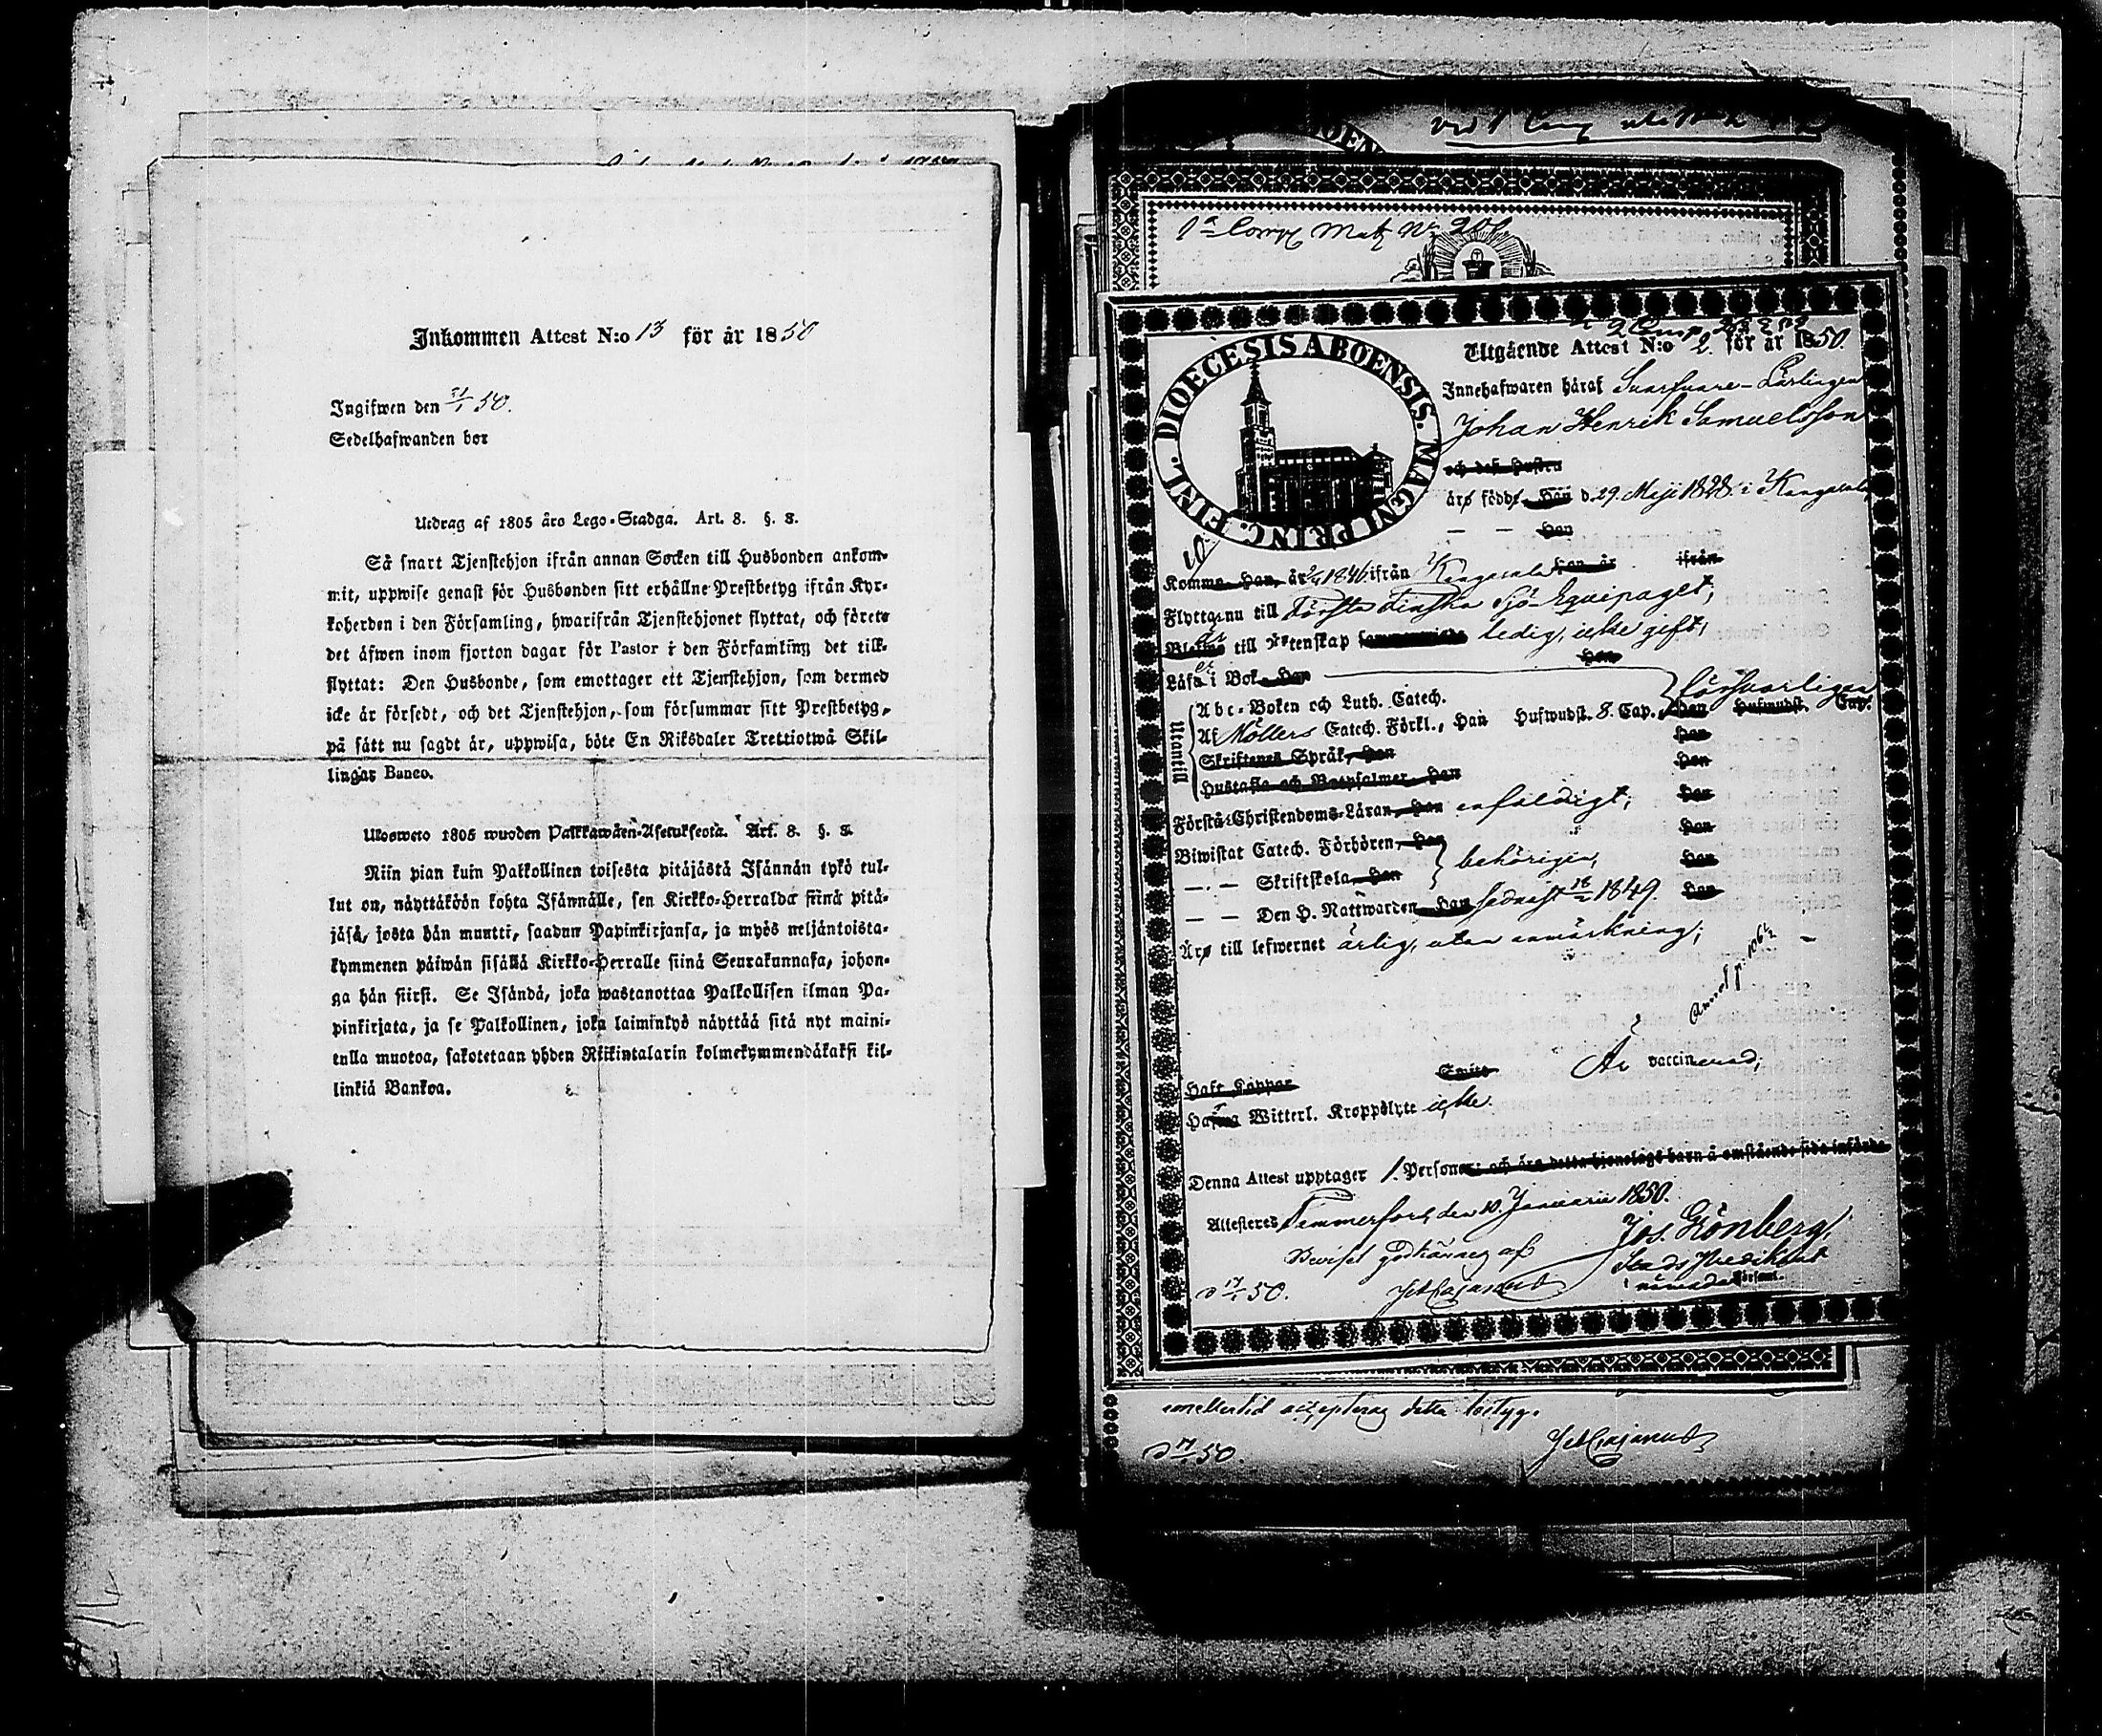 Inkommen Attest N:o 13 för år 1850
Ingifwen den 21/1 50.
Sedelhafwanden bor
Utdrag af 1805 års Lego-Stadga. Art. 8. §. 8.
Så snart Tjenstehjon ifrån annan Socken till Husbonden ankom-
mit, uppwise genast för Husbonden sitt erhållne Prestbetyg ifrån Kyr-
koherden i den Församling, hwarifrån Tjenstehjonet flyttat, och förete
det äfwen inom fjorton dagar för Pastor i den Församling det till-
flyttat: Den Husbonde, som emottager ett Tjenstehjon, som dermed
icke är försedt, och det Tjenstehjon, som försummar sitt Prestbetyg,
på sätt nu sagdt är, uppwisa, böte En Riksdaler Trettiotwå Skil-
lingar Banco.
Ulosweto 1805 wuoden Palkkawäen-Asetuksesta. Art. 8. §. 8.
Niin pian kuin Palkollinen toisesta pitäjästä Isännän tykö tul-
lut on, näyttäköön kohta Isännälle, sen Kirkko-Herralda siinä pitä-
jäsä, josta hän muutti, saadun Papinkirjansa, ja myös neljäntoista-
kymmenen päiwän sisällä Kirkko-Herralle siinä Seurakunnasa, johon-
ga hän siirsi. Se Isändä, joka wastanottaa Palkollisen ilman Pa-
pinkirjata, ja se Palkollinen, joka laiminlyö näyttää sitä nyt maini-
tulla muotoa, sakotetaan yhden Riikintalarin kolmekymmendäkaksi kil-
linkiä Bankoa.
1a Comp Mat No 201.
DIOECESIS ABOENSIS. MAGNI PRINC. FINL.
Utgående Attest N:o 2. för år 1850.
Innehafwaren häraf Svarfvare-Lärlingen
Johan Henrik Samuelsson
och dess Hustru
äro födde, Han d. 29 Maji 1828. i Kangasala
— — Hon
Komne, Han, år 1846 ifrån Kangasala Hon år ifrån
Flytta nu till Första Finska Sjö-Equipaget,
är till Äktenskap ledig, icke gift,
Hon
Läsa i Bok Han försvarligen
Utantill
Abc-Boken och Luth. Catech.
Af Möllers Catech. Förkl., Han Hufwudst. 8. Cap. Hon Hufwudst. Cap.
Skriftenes Språk, Han Hon
Hustafla och Botpsalmer, Han Hon
Förstå Christendoms-Läran, Han enfaldigt, Hon
Biwistat Catech. Förhören, Han Hon
— — Skriftskola, Han behörigen, Hon
— — Den H. Nattwarden, Han sednast 18/ 1849. Hon
Äro till lefwernet ärlig, utan anmärkning,
Haft Koppor Smitt Är vaccinerad,
Hafwa Witterl. Kroppslyte icke.
Denna Attest upptager 1. Personer: och äro detta hjonelags barn å omstående sida införde
Attesteres Tammerfors, den 10. Januarii 1850.
Jos. Grönberg,
Beviset godkännes af
Stads Predikant
i nämnda Församl.
d 17/1 50.
emellertid accepteras detta betyg.
d 17/1 50.